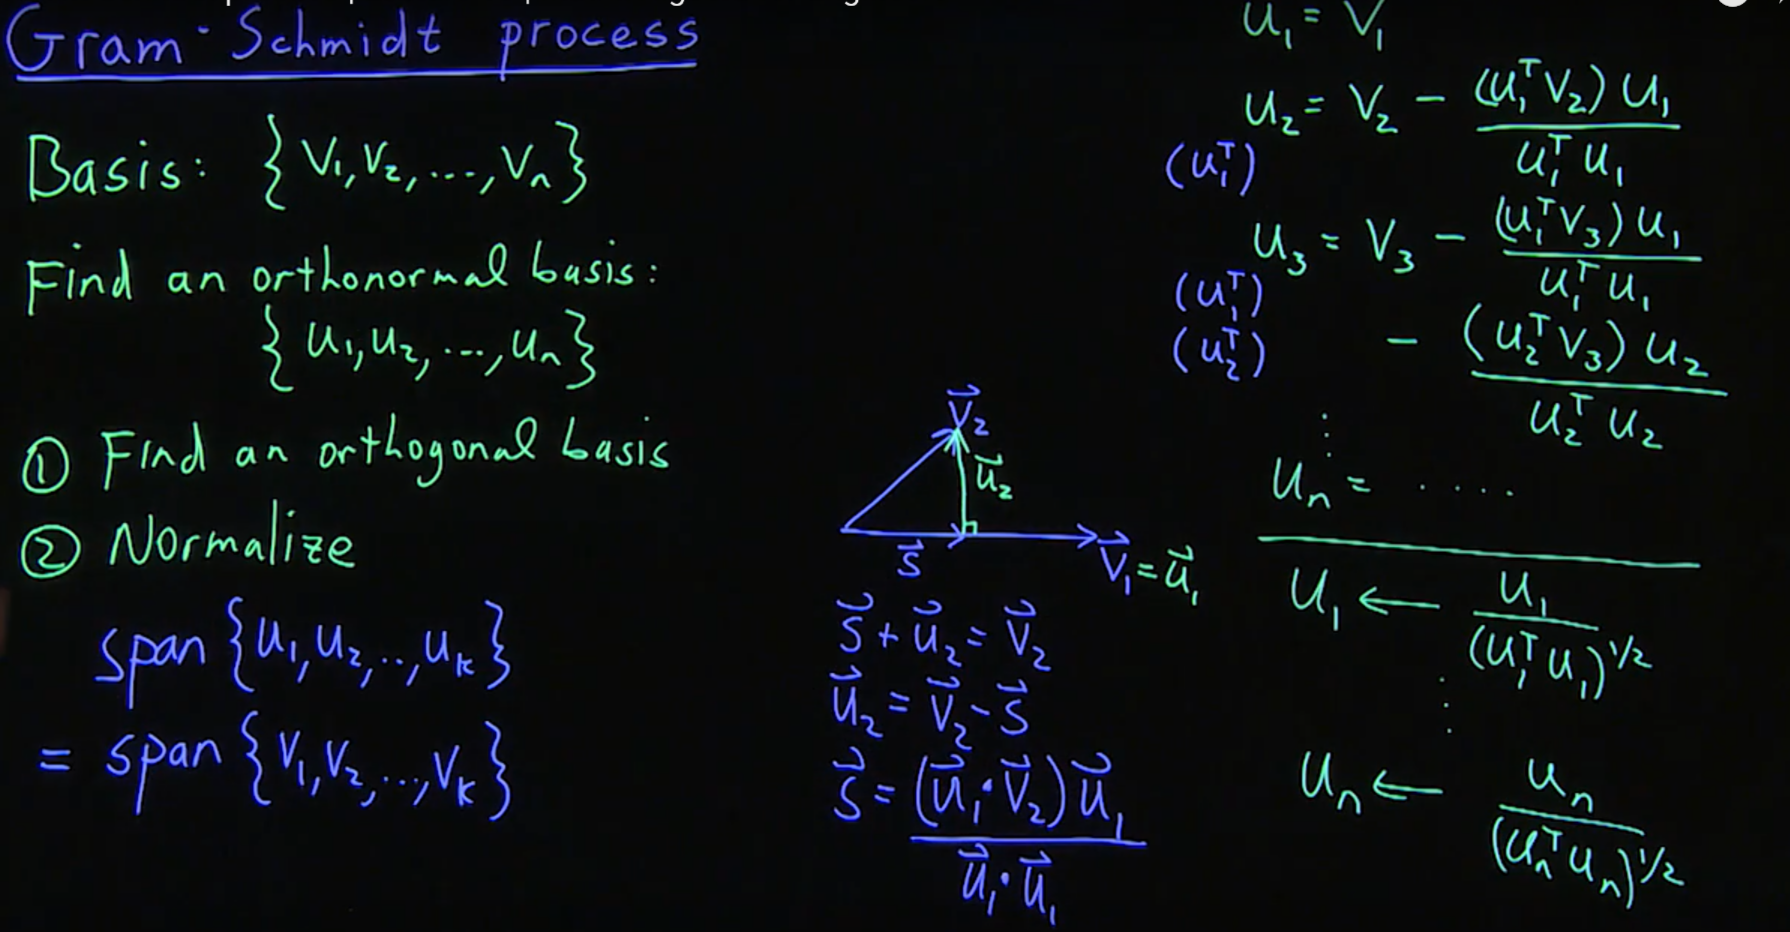 Gram-Schmidt process
Basis: {V₁, V₂, ..., Vₙ}
Find an orthonormal basis:
{u₁, u₂, ..., uₙ}
① Find an orthogonal basis
② Normalize
span {u₁, u₂, .., uₖ}
= span {V₁, V₂, ..., Vₖ}
V⃗₂
u⃗₂
s⃗
V⃗₁ = u⃗₁
s⃗ + u⃗₂ = V⃗₂
u⃗₂ = V⃗₂ - s⃗
s⃗ = (u⃗₁·V⃗₂) u⃗₁ / u⃗₁·u⃗₁
u₁ = V₁
u₂ = V₂ - (u₁ᵀV₂) u₁ / u₁ᵀu₁
(u₁ᵀ)
u₃ = V₃ - (u₁ᵀV₃) u₁ / u₁ᵀu₁
(u₁ᵀ)
(u₂ᵀ) - (u₂ᵀV₃) u₂ / u₂ᵀu₂
⋮
uₙ = .....
u₁ ← u₁ / (u₁ᵀu₁)^1/2
⋮
uₙ ← uₙ / (uₙᵀuₙ)^1/2